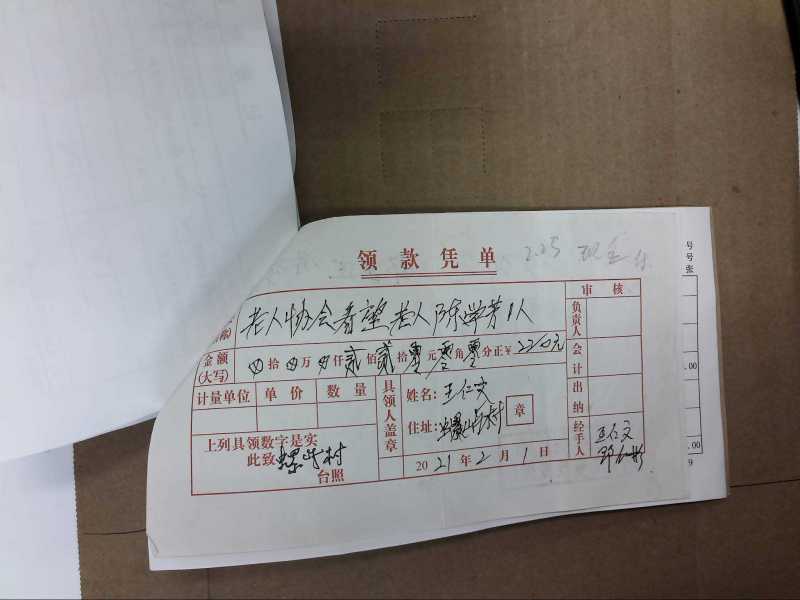 领款凭单
2.25 现金付
老人协会看望老人陈学芳1人
称)
审核
负责人
金额
(大写)
⊗拾⊗万⊗仟贰佰贰拾零元零角零分正¥220元
会计
计量单位 单价 数量
具领人盖章
姓名:王仁文
住址:螺屿村
章
出纳
上列具领数字是实
此致螺屿村
台照
2021年2月1日
经手人
王仁文
号
号
张
.00
.00
9